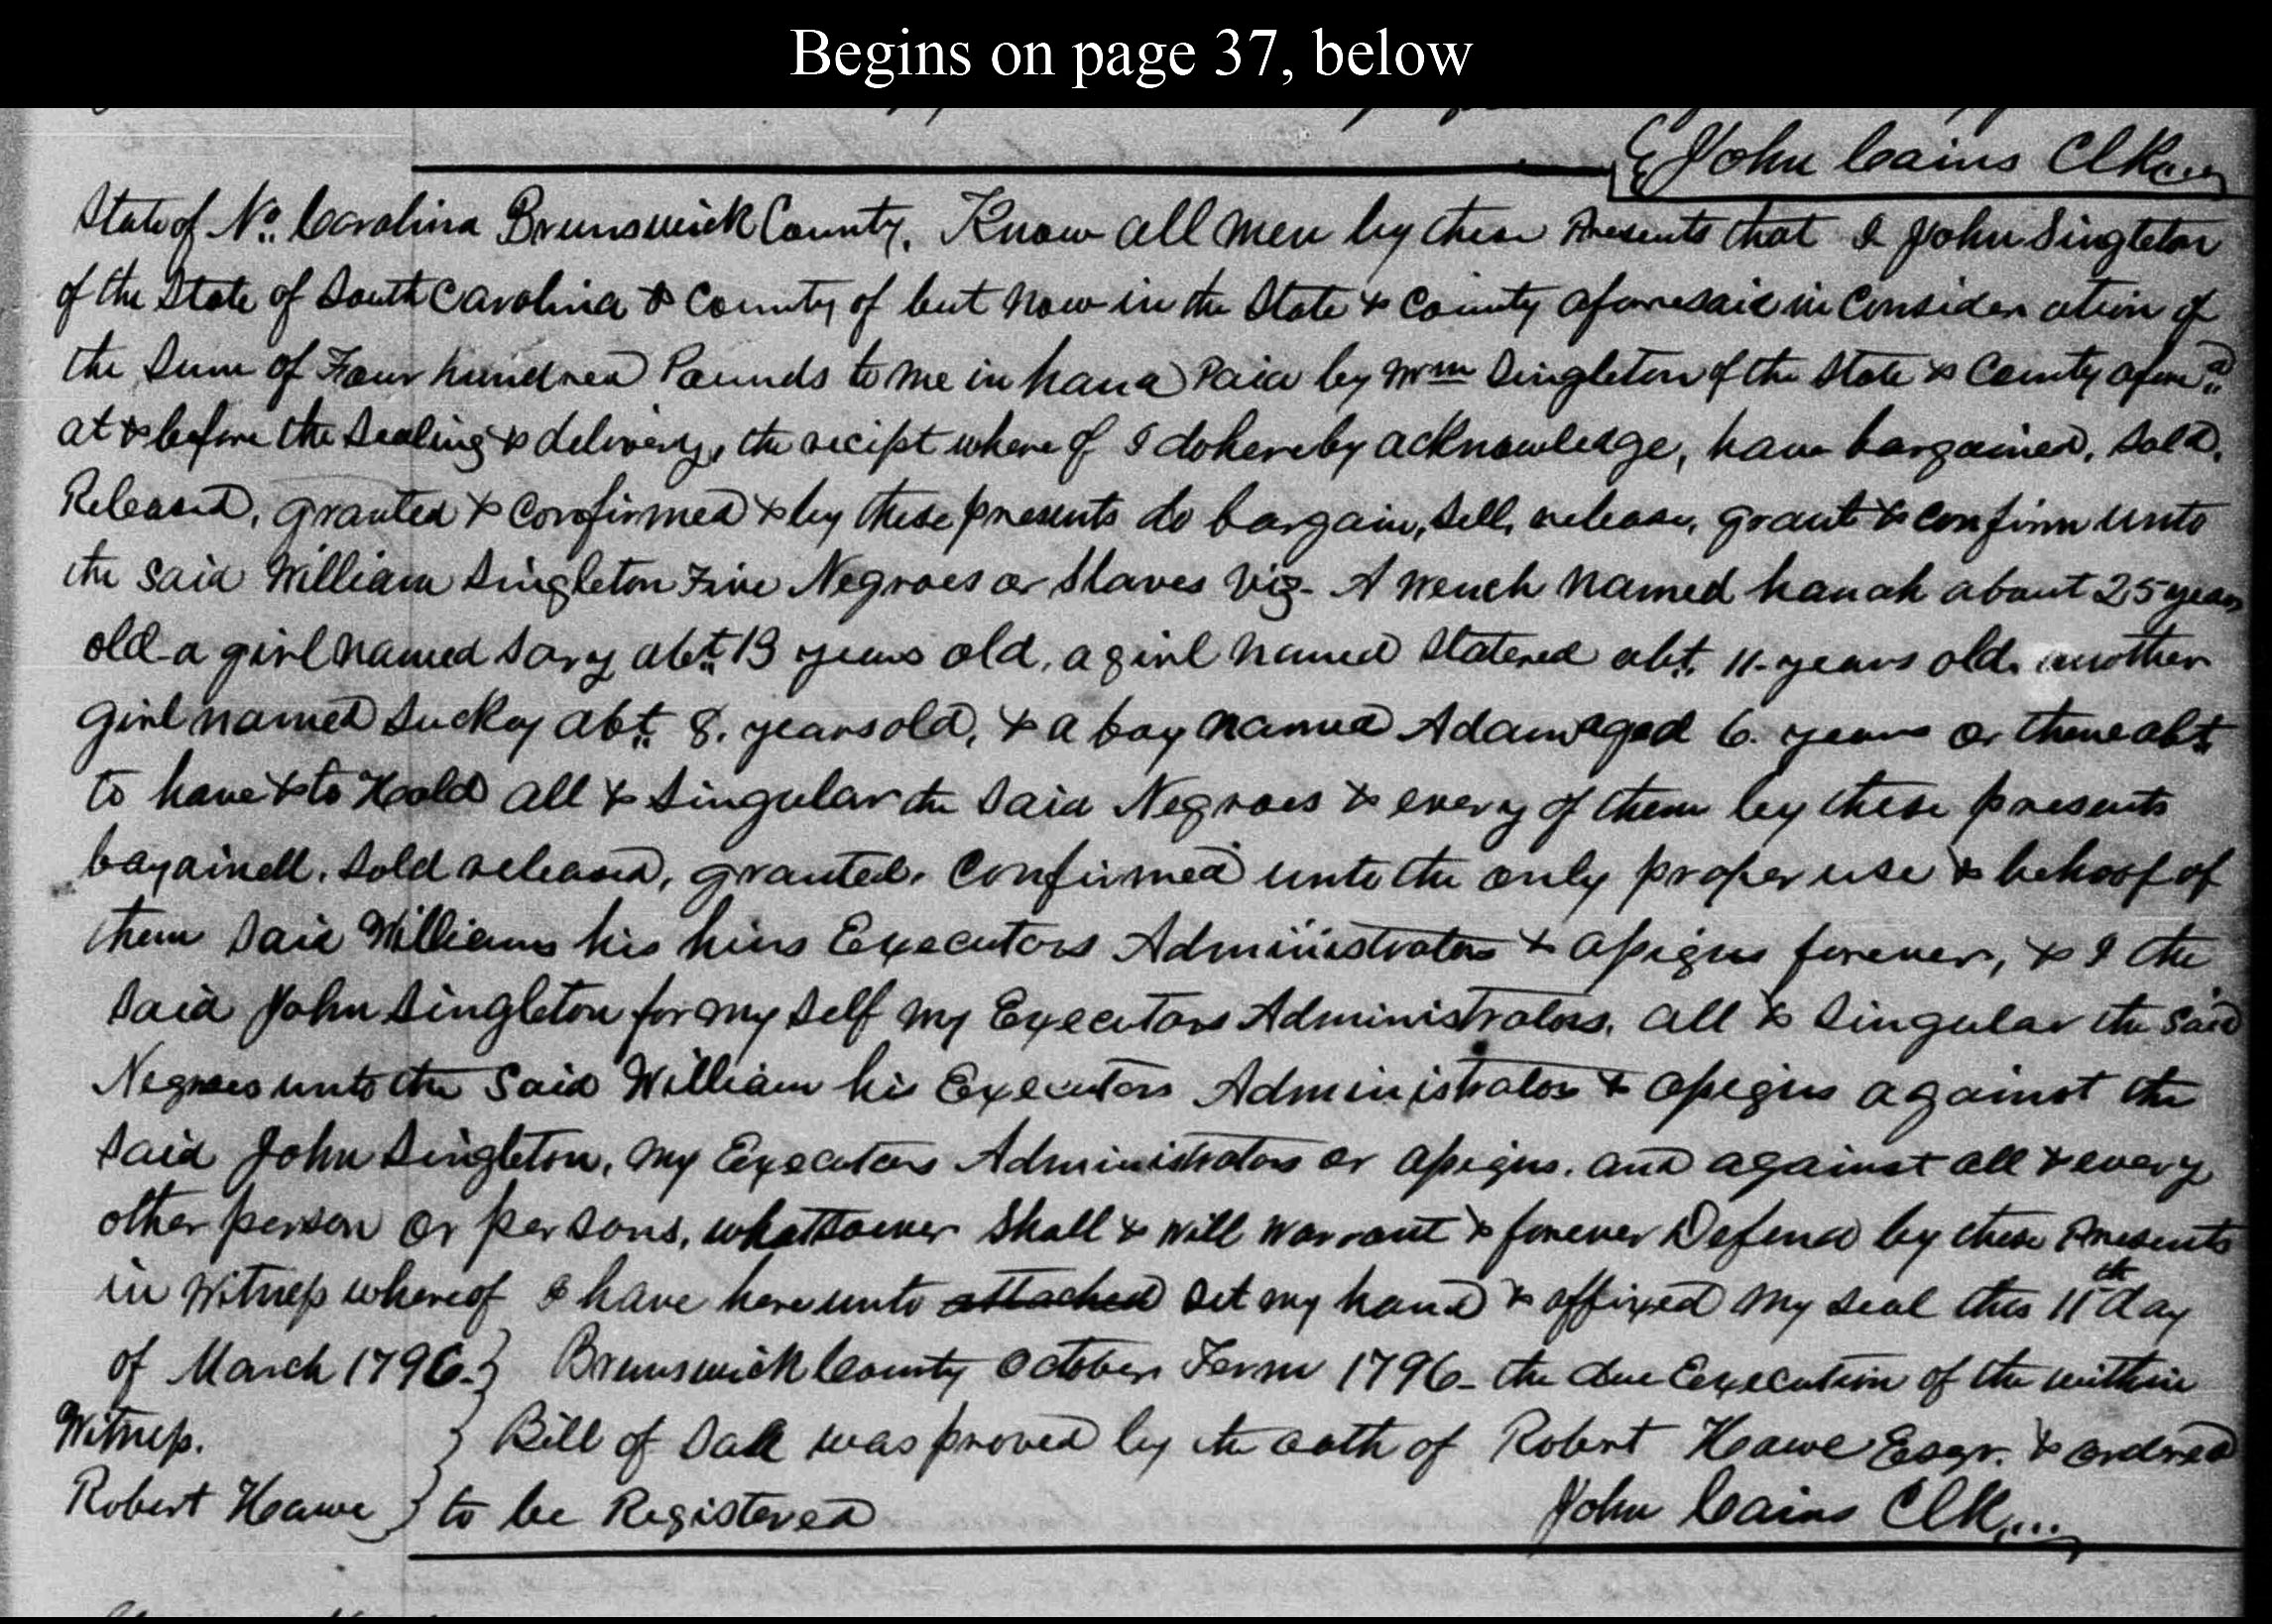 Begins on page 37, below
John Cains Clk
State of No. Carolina Brunswick County. Know all men by these Presents that I John Singleton
of the State of South Carolina & County of but now in the State & County aforesaid in Consideration of
the Sum of Four hundred Pounds to me in hand Paid by Wm Singleton of the State & County afore.d
at & before the Sealing & delivery, the recipt where of I do hereby acknowledge, have bargained, Sold,
Released, granted & Confirmed & by these presents do bargain, Sell, release, grant & confirm unto
the Said William Singleton Five Negroes or Slaves Viz- A wench named hanah about 25 years
old a girl named Sary abt. 13 years old, a girl named Statered abt. 11 years old. another
girl named Suckey abt. 8. years old, & a boy named Adam aged 6. years or there abt.
to have & to Hold all & Singular the Said Negroes & every of them by these presents
bargained. Sold released, granted. Confirmed unto the only proper use & behoof of
them Said Williams his heirs Executors Administrators & assigns forever, & I the
Said John Singleton for my Self my Executors Administrators. all & Singular the Said
Negroes unto the Said William his Executors Administrators & assigns against the
Said John Singleton, my Executors Administrators or assigns. and against all & every
other person or persons, whatsoever Shall & will Warrant & forever Defend by these Presents
in Witness whereof I have here unto attached Set my hand & affixed my Seal this 11th day
of March 1796. } Brunswick County October Term 1796- the due Execution of the within
Witness. } Bill of Sale was proved by the oath of Robert Howe Esqr. & ordred
Robert Howe } to be Registered John Cains Clk